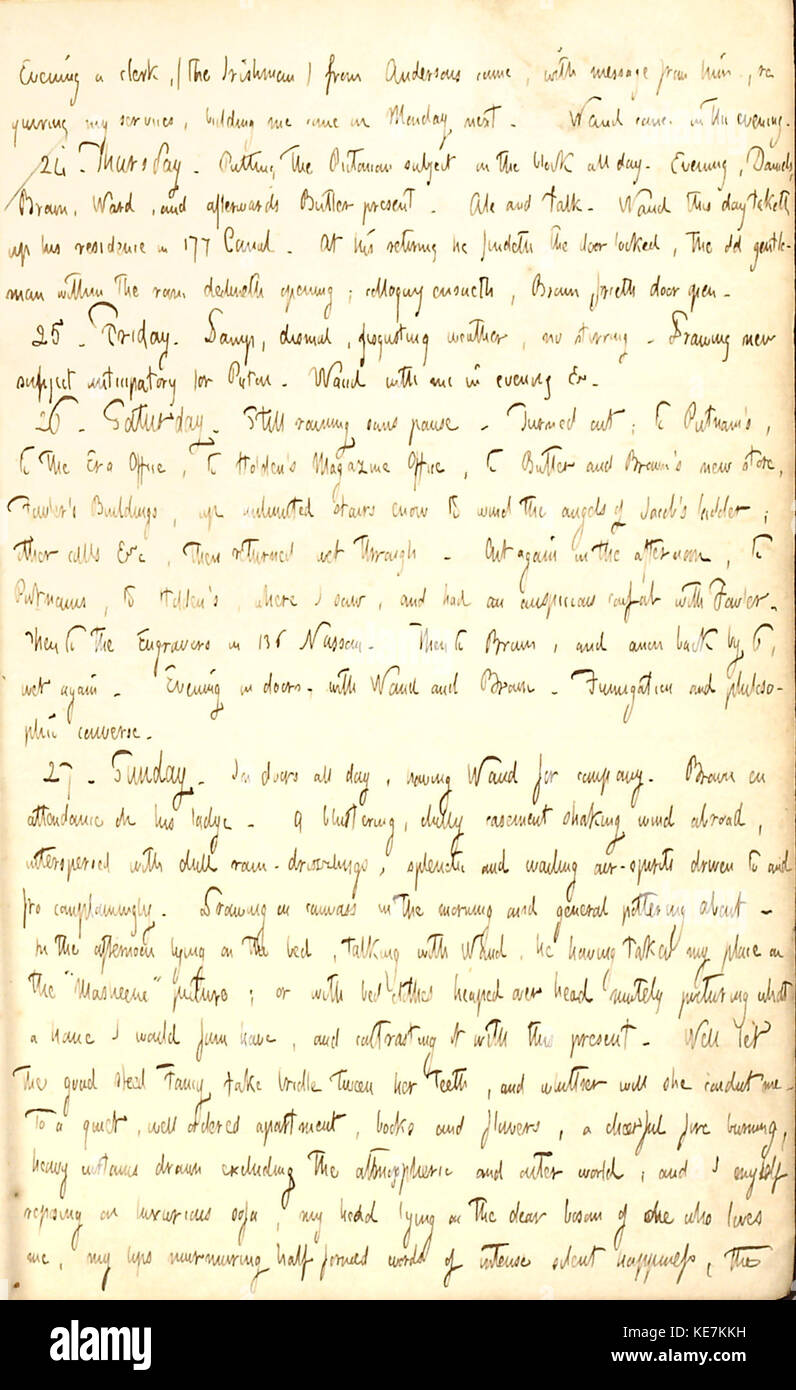 Evening a clerk, (the Irishman) from Andersons came, with message from him, re
quiring my services, bidding me come on Monday next. Waud came in the evening.
24. Thursday. Putting the Pictorian subject on the block all day. Evening, Daniels,
Brown, Ward, and afterwards Butler present. Ale and talk. Waud this day taketh
up his residence in 177 Canal. At his retiring he findeth the door locked, the old gentle-
man within the room declineth opening; colloquy ensueth, Brown forceth door open.
25. Friday. Damp, dismal, disgusting weather, no stirring. Drawing new
subject anticipatory for Picton. Waud with me in evening &c.
26. Saturday. Still raining sans pause. Turned out; to Putnam's,
to the Era Office, to Holden's Magazine Office, to Butler and Brown's new store,
Fowler's Buildings, up unlimited stairs enow to wind the angels of Jacob's ladder;
other calls &c, then returned wet through. Out again in the afternoon, to
Putnams, to Holden's, where I saw, and had an auspicious confab with Fowler.
Then to the Engravers in 136 Nassau. Then to Brown, and anon back by 6,
wet again. Evening in doors, with Waud and Brown. Fumigation and philoso-
phic converse.
27. Sunday. In doors all day, having Waud for company. Brown on
attendance on his ladye. A blustering, chilly casement shaking wind abroad,
interspersed with dull rain-drizzlings, splenetic and wailing air-spirits driven to and
fro complainingly. Drawing on canvass in the morning and general pottering about.
In the afternoon lying on the bed, talking with Waud, he having taken my place on
the "Masheene" picture; or with bed clothes heaped over head mutely picturing what
a home I would fain have, and contrasting it with this present. Well let
the good steed Fancy take bridle tween her teeth, and whither will she conduct me.
To a quiet, well ordered apartment, books and flowers, a cheerful fire burning,
heavy curtains drawn excluding the atmospheric and outer world; and I myself
reposing on luxurious sofa, my head lying on the dear bosom of she who loves
me, my lips murmuring half formed words of intense silent happiness, the
alamy
Image ID: KE7KKH
www.alamy.com